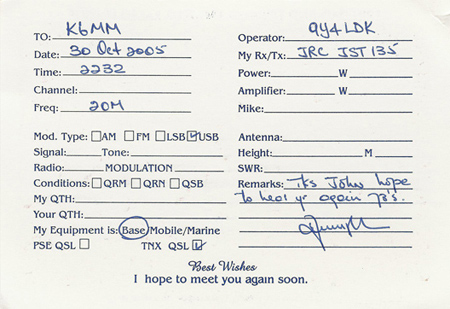 TO: K6MM
Date: 30 Oct 2005
Time: 2232
Channel:
Freq: 20M
Mod. Type: ☐AM ☐FM ☐LSB ☑USB
Signal: Tone:
Radio: MODULATION
Conditions: ☐QRM ☐QRN ☐QSB
My QTH:
Your QTH:
My Equipment is: Base/Mobile/Marine
PSE QSL ☐ TNX QSL ☑
Operator: 9Y4LDK
My Rx/Tx: JRC JST 135
Power: W
Amplifier: W
Mike:
Antenna:
Height: M
SWR:
Remarks: Tks John hope
to hear yr again 73's.
Best Wishes
I hope to meet you again soon.